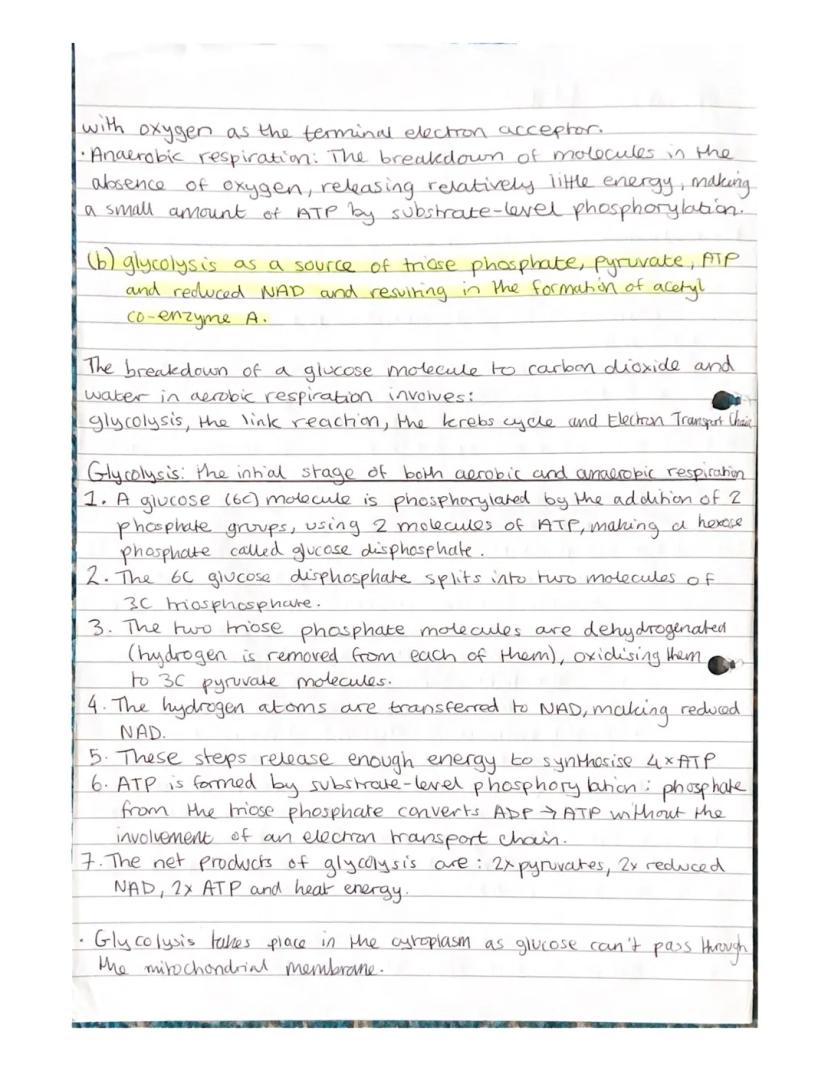 with oxygen as the terminal electron acceptor.
· Anaerobic respiration: The breakdown of molecules in the
absence of oxygen, releasing relatively little energy, making
a small amount of ATP by substrate-level phosphorylation.
(b) glycolysis as a source of triose phosphate, pyruvate, ATP
and reduced NAD and resulting in the formation of acetyl
co-enzyme A.
The breakdown of a glucose molecule to carbon dioxide and
water in aerobic respiration involves:
glycolysis, the link reaction, the krebs cycle and Electron Transport Chain
Glycolysis: the initial stage of both aerobic and anaerobic respiration
1. A glucose (6C) molecule is phosphorylated by the addition of 2
phosphate groups, using 2 molecules of ATP, making a hexose
phosphate called glucose disphosphate.
2. The 6C glucose disphosphate splits into two molecules of
3C triosphosphate.
3. The two triose phosphate molecules are dehydrogenated
(hydrogen is removed from each of them), oxidising them
to 3C pyruvate molecules.
4. The hydrogen atoms are transferred to NAD, making reduced
NAD.
5. These steps release enough energy to synthosise 4xATP
6. ATP is formed by substrate-level phosphorylation: phosphate
from the triose phosphate converts ADP → ATP without the
involvement of an electron transport chain.
7. The net products of glycolysis are: 2x pyruvates, 2x reduced
NAD, 2x ATP and heat energy.
· Glycolysis takes place in the cytoplasm as glucose can't pass through
the mitochondrial membrane.